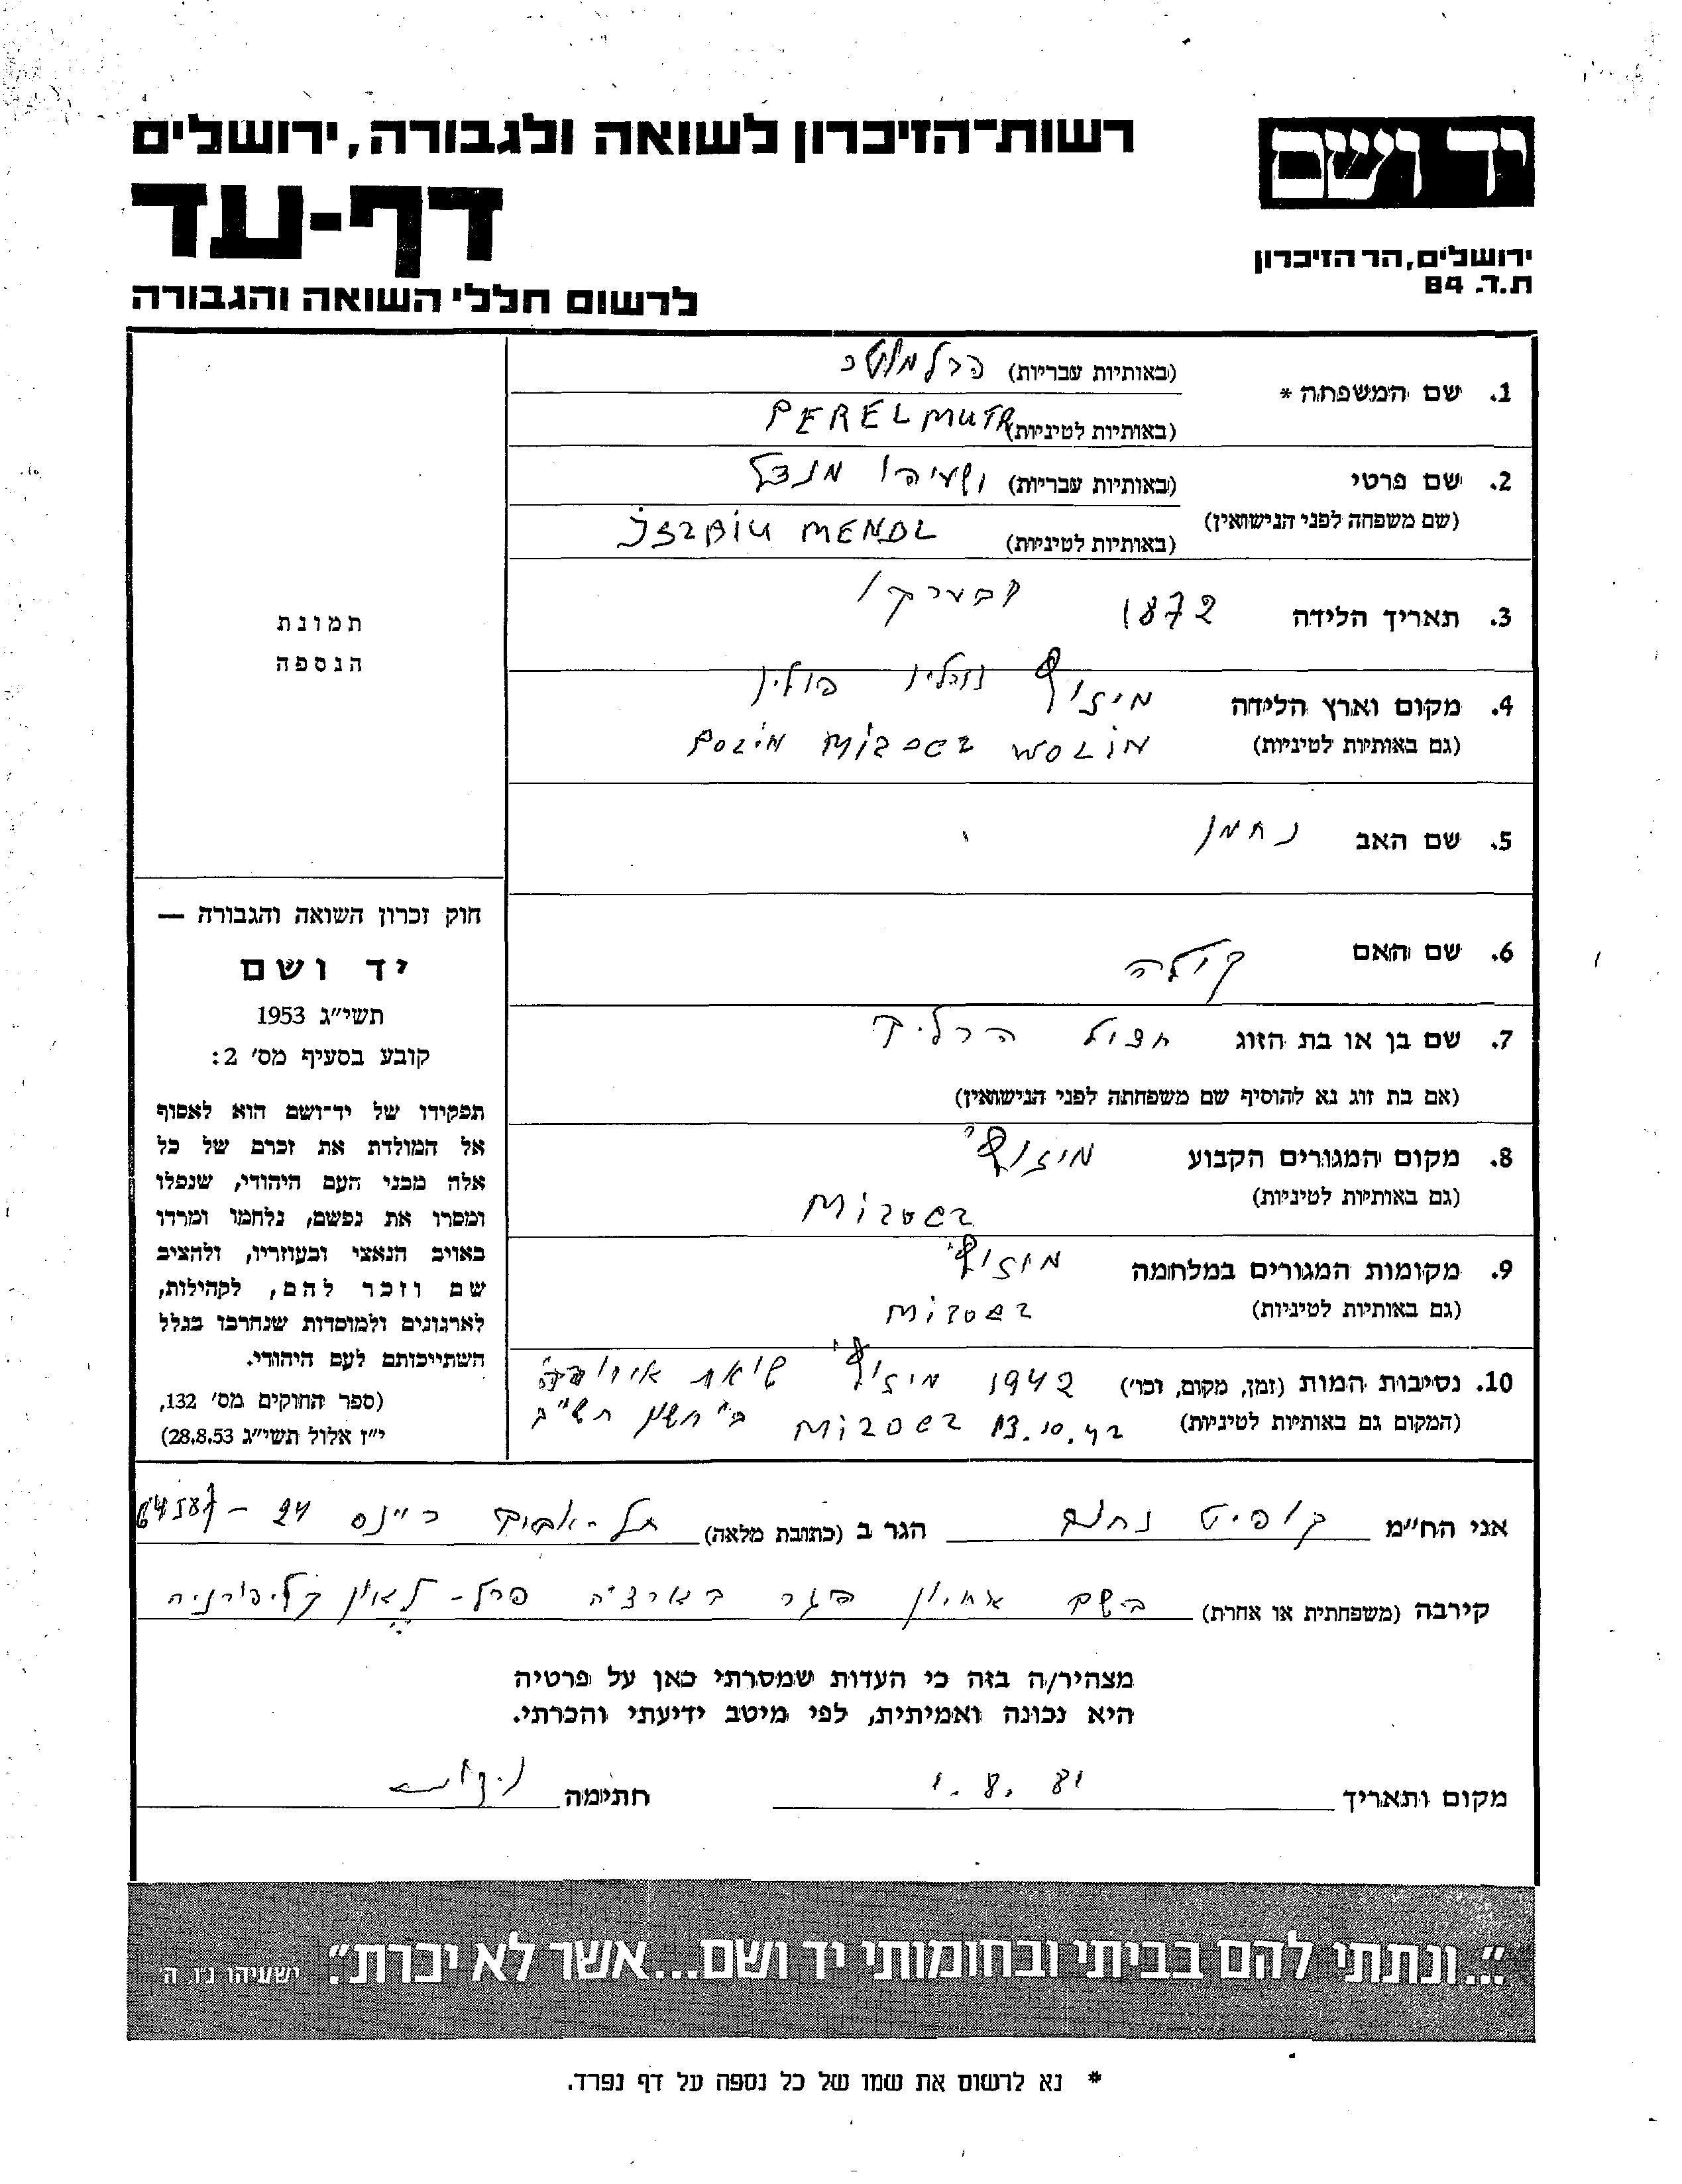 רשות-הזיכרון לשואה ולגבורה, ירושלים
יד ושם
דף-עד
ירושלים, הר הזיכרון
ת.ד. 84
לרשום חללי השואה והגבורה
1. שם המשפחה * (באותיות עבריות)
(באותיות לטיניות) PERELMUTR
2. שם פרטי (באותיות עבריות) ישעיהו מנדל
(שם משפחה לפני הנישואין)
(באותיות לטיניות) MENDL
3. תאריך הלידה 1872
4. מקום וארץ הלידה פולין
(גם באותיות לטיניות) WOLIN MIZOCZ POLIN
5. שם האב נחמן
6. שם האם קילה
7. שם בן או בת הזוג
(אם בת זוג נא להוסיף שם משפחתה לפני הנישואין)
8. מקום המגורים הקבוע
(גם באותיות לטיניות) MIZOCZ
9. מקומות המגורים במלחמה
(גם באותיות לטיניות) MIZOCZ
10. נסיבות המות (זמן, מקום, וכו') 1942 שואת
(המקום גם באותיות לטיניות) 13.10.42 MIZOCZ ב' חשון תש"ב
תמונת
הנספה
חוק זכרון השואה והגבורה —
יד ושם
תשי"ג 1953
קובע בסעיף מס' 2:
תפקידו של יד-ושם הוא לאסוף
אל המולדת את זכרם של כל
אלה מבני העם היהודי, שנפלו
ומסרו את נפשם, נלחמו ומרדו
באויב הנאצי ובעוזריו, ולהציב
שם וזכר להם, לקהילות,
לארגונים ולמוסדות שנחרבו בגלל
השתייכותם לעם היהודי.
(ספר החוקים מס' 132,
י"ז אלול תשי"ג 28.8.53)
אני הח"מ קופיט נחום הגר ב (כתובת מלאה) תל-אביב ריינס 24 - 64587
קירבה (משפחתית או אחרת) בשם אחיין הגר
מצהיר/ה בזה כי העדות שמסרתי כאן על פרטיה
היא נכונה ואמיתית, לפי מיטב ידיעתי והכרתי.
מקום ותאריך 1.8.81 חתימה
"...ונתתי להם בביתי ובחומותי יד ושם...אשר לא יכרת". ישעיהו נ"ו, ה'
* נא לרשום את שמו של כל נספה על דף נפרד.